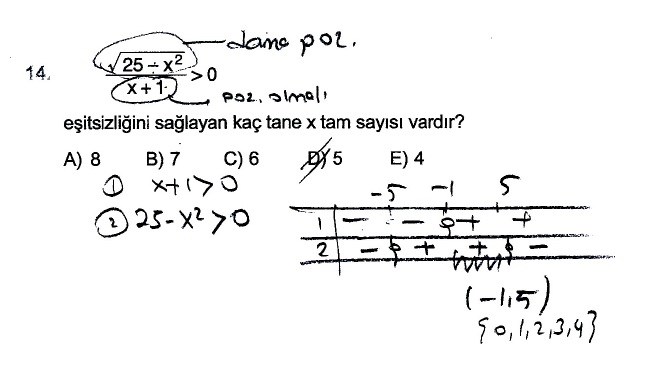 daima poz.
14. √25 - x² / x + 1 > 0
poz. olmalı
eşitsizliğini sağlayan kaç tane x tam sayısı vardır?
A) 8 B) 7 C) 6 D) 5 E) 4
① x+1>0
② 25-x²>0
-5 -1 5
1 - - + +
2 - + + -
(-1,5)
{0,1,2,3,4}